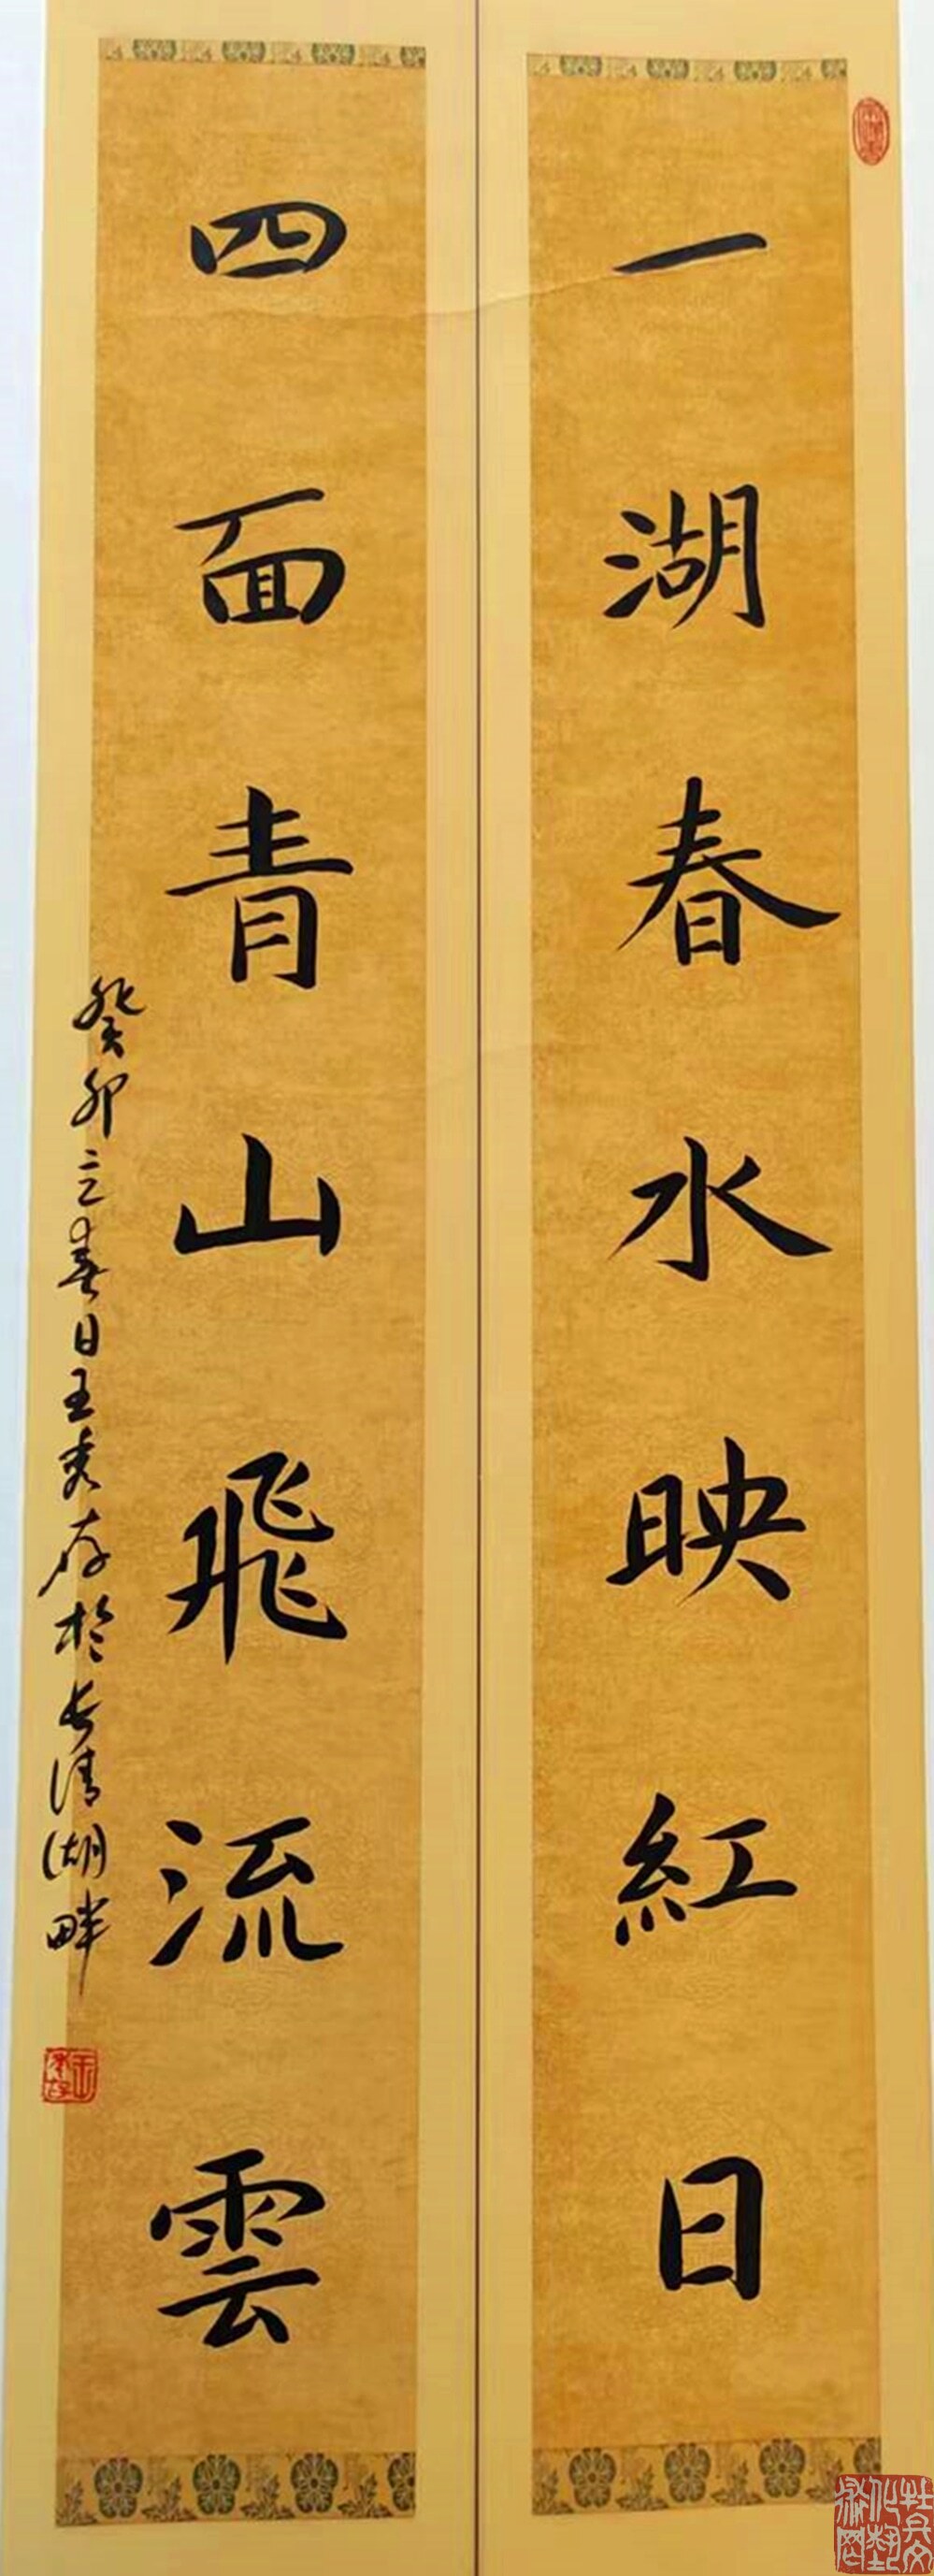 一湖春水映紅日
四面青山飛流雲
癸卯立春日王秀存於长清湖畔